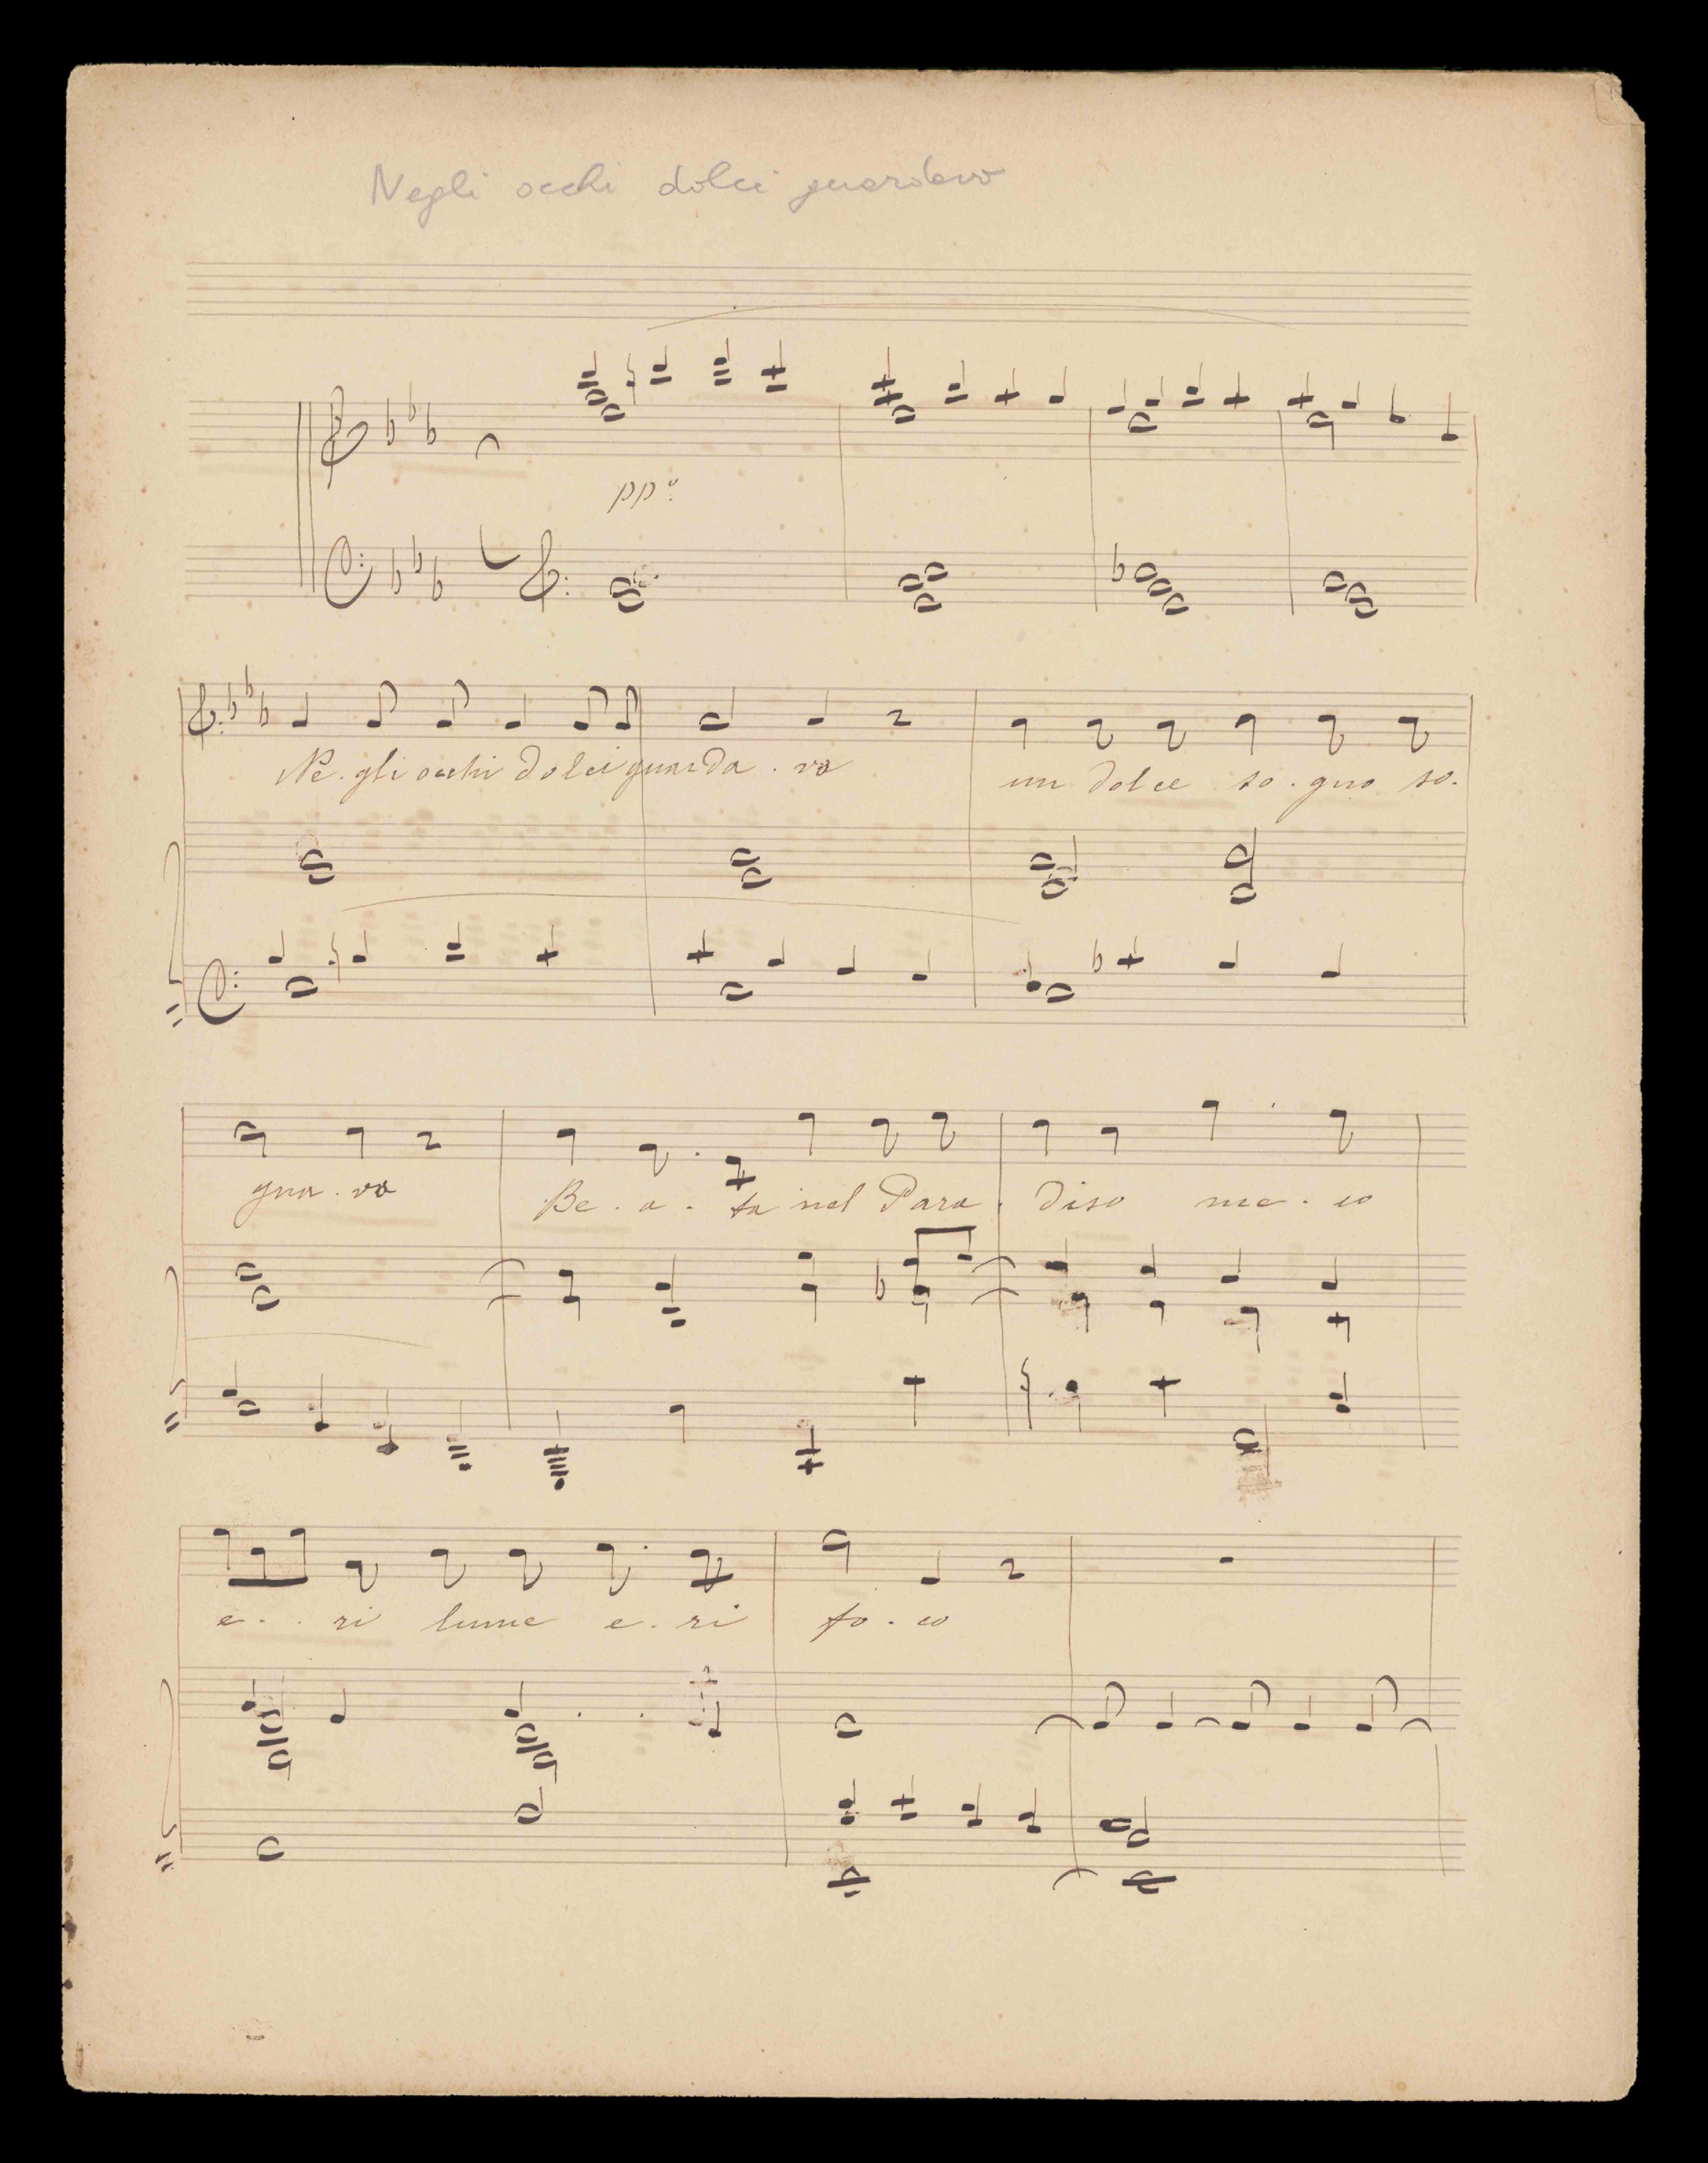 Negli occhi dolci guardavo
ppº
Ne. gli occhi dolci guarda. vo un dolce so. gno so.
gna. vo Be. a. ta nel Para. diso me. co
e. . ri lume e. ri fo. co